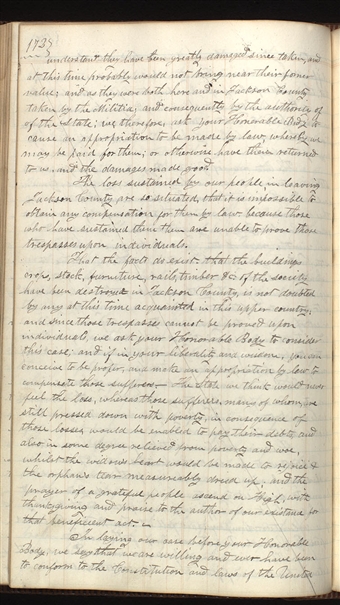 173
understand they have been greatly damaged since taken, and
at this time probably would not bring near their former
value; and as they were both here and in Jackson County
taken by the Militia, and consequently by the authority of
of the State, we therefore, ask your Honorable Body to
cause an appropriation to be made by law, whereby we
may be paid for them, or otherwise have them returned
to us and the damages made good
The loss sustained by our people in leaving
Jackson County are so situated, that it is impossible to
obtain any compensation for them by law, because those
who have sustained them them are unable to prove those
trespasses upon individuals.
That the facts do exist that the buildings
crops, stock, furniture, rails, timber &c of the society
have been destroyed in Jackson County, is not doubted
by any at this time acquainted in this upper country;
and since those trespasses cannot be proved upon
individuals, we ask your Honorable Body to consider
this case; and if in your liberality and wisdom, you can
conceive to be proper, and make an appropriation by law to
compensate those sufferers— The State we think would never
feel the loss, whereas those sufferers, many of whom, are
still pressed down with poverty, in consequence of
those losses, would be enabled to pay their debts and
also in some degree relieved from poverty and woe,
whilst the widows heart would be made to rejoice &
the orphans tear measureably dried up, and the
prayer of a grateful people ascend on High, with
thanksgiving and praise to the author of our existence for
that beneficent act. —
In laying our case before your Honorable
Body, we say that we are willing and ever have been
to conform to the Constitution and laws of the United